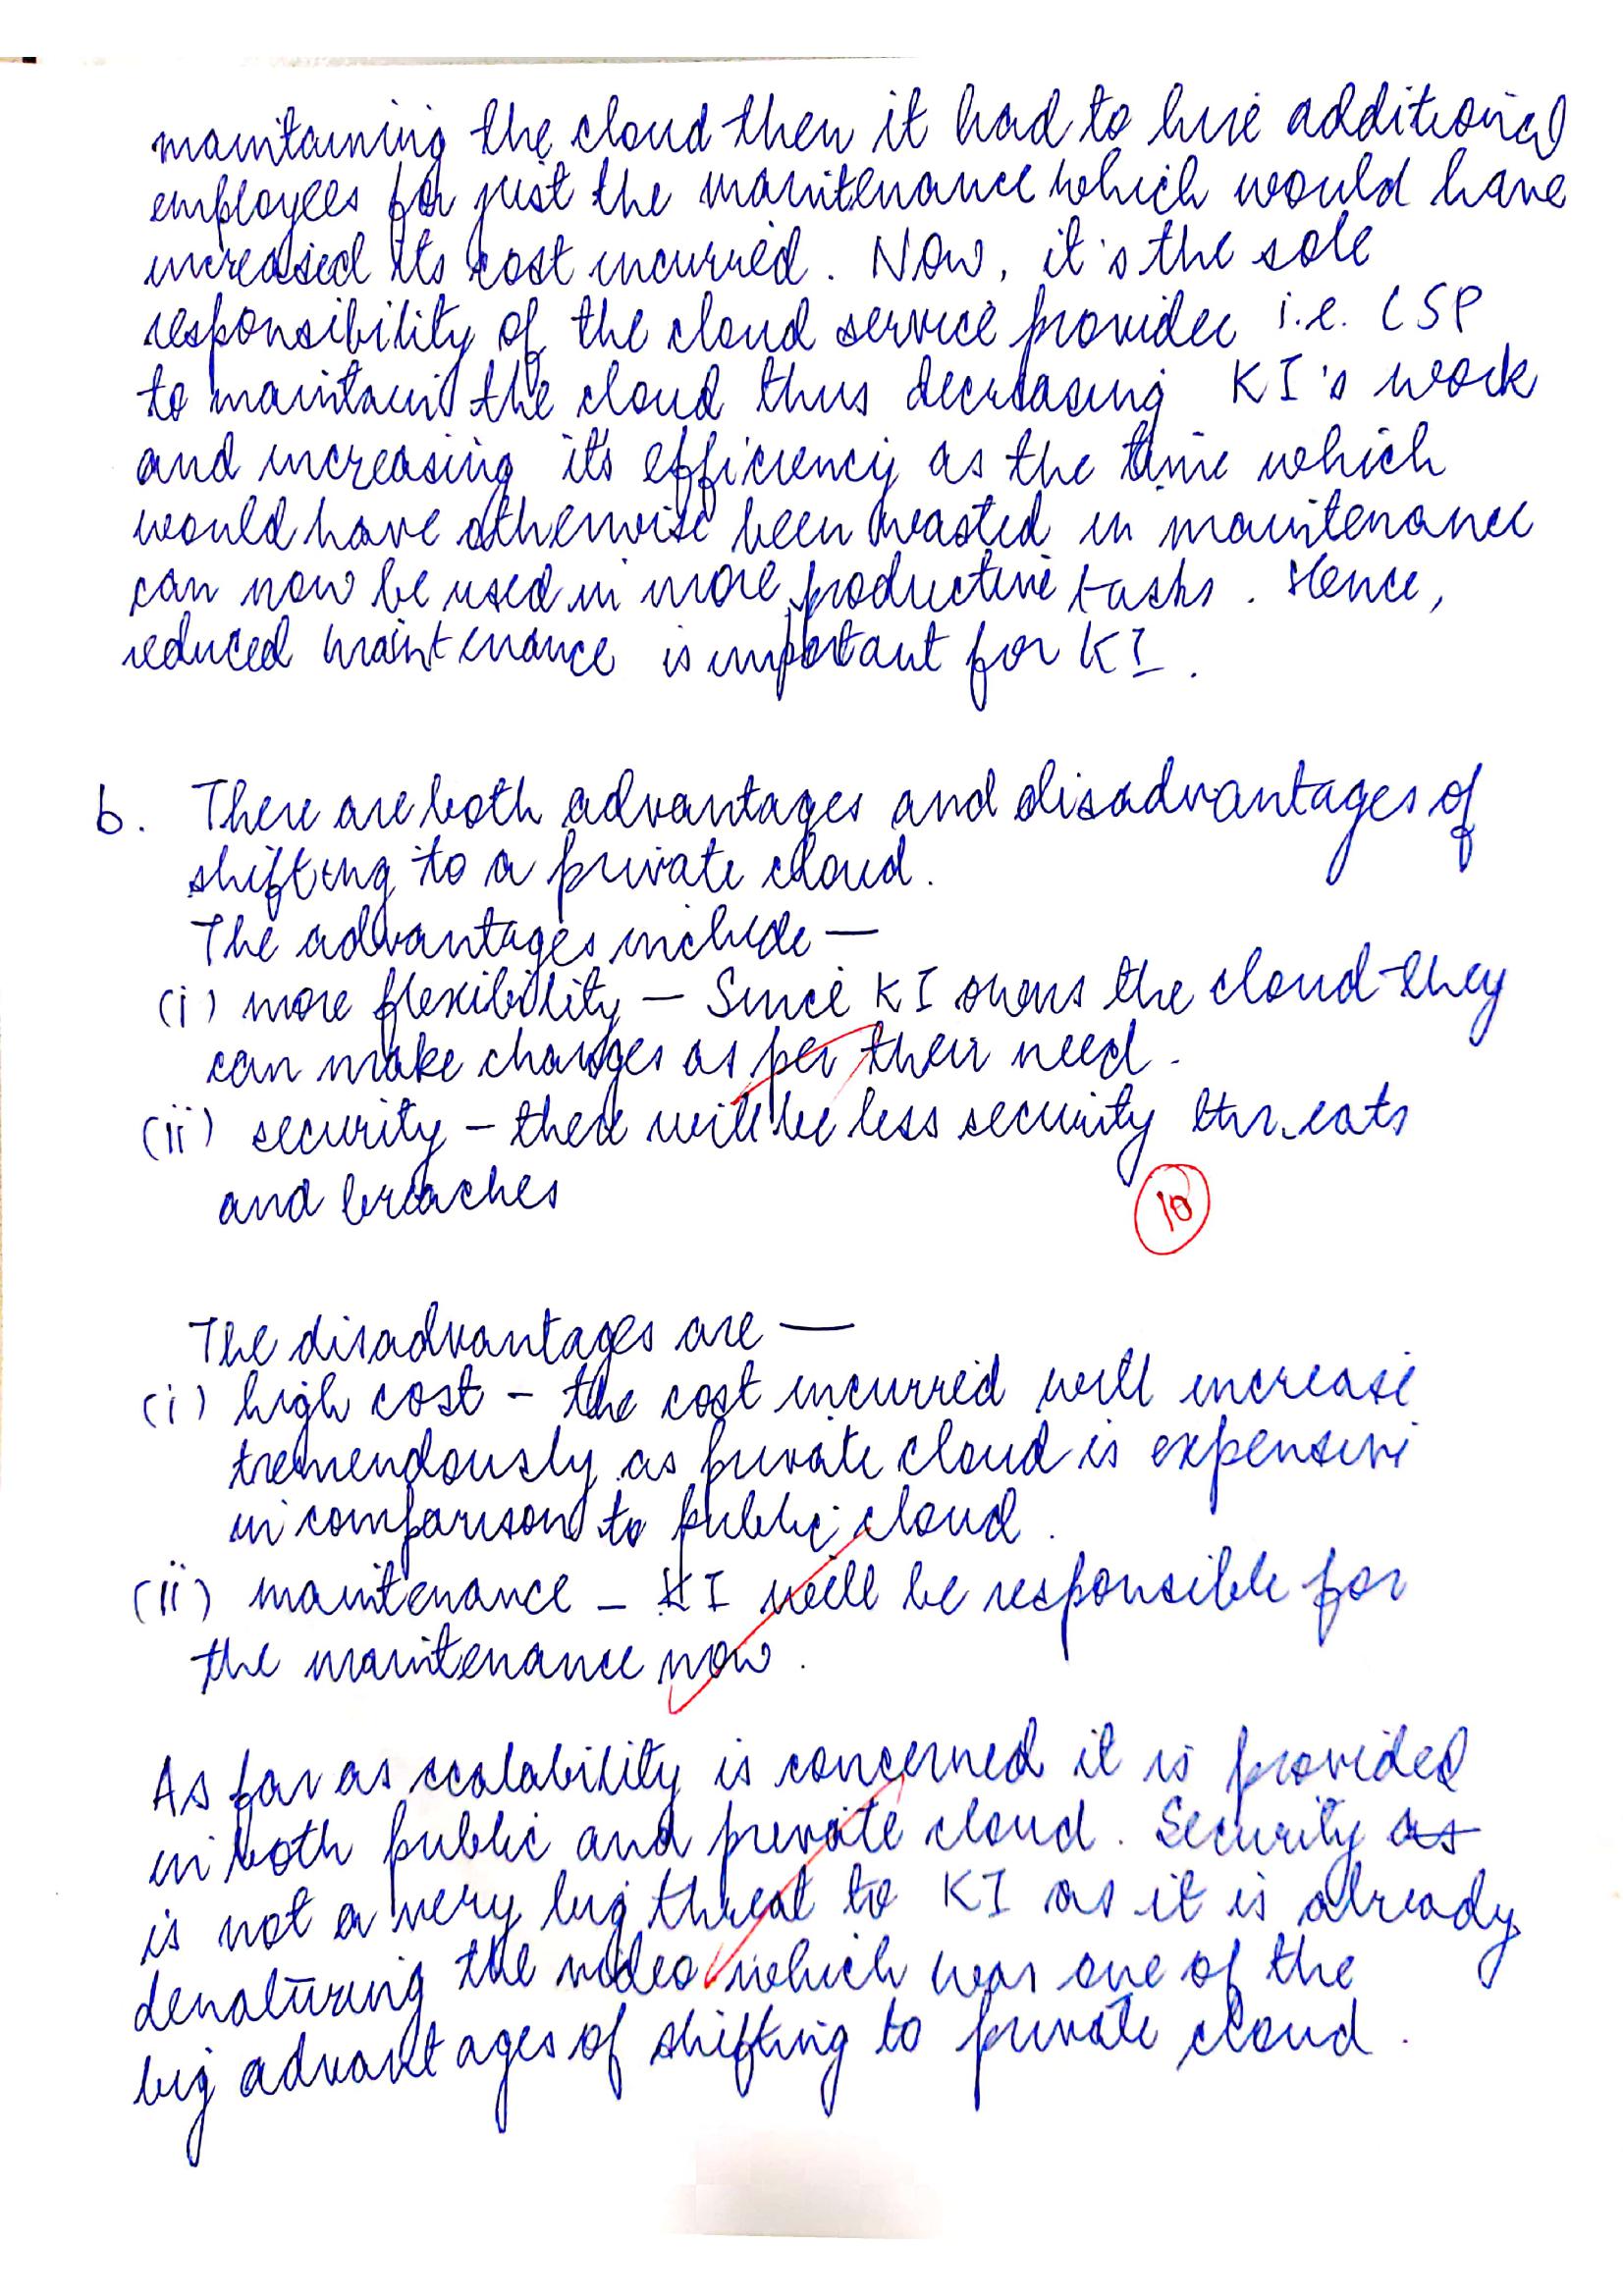 maintaining the cloud then it had to hire additional
employees for just the maintenance which would have
increased its cost incurred. Now, it's the sole
responsibility of the cloud service provider i.e. CSP
to maintain the cloud thus decreasing KI's work
and increasing its efficiency as the time which
would have otherwise been wasted in maintenance
can now be used in more productive tasks. Hence,
reduced maintenance is important for KI.
b. There are both advantages and disadvantages of
shifting to a private cloud.
The advantages include —
(i) more flexibility — Since KI owns the cloud they
can make changes as per their need.
(ii) security – there will be less security threats
and breaches
10
The disadvantages are —
(i) high cost – the cost incurred will increase
tremendously as private cloud is expensive
in comparison to public cloud.
(ii) maintenance – KI will be responsible for
the maintenance now.
As far as scalability is concerned it is provided
in both public and private cloud. Security as
is not a very big threat to KI as it is already
denaturing the video which was one of the
big advantages of shifting to private cloud.